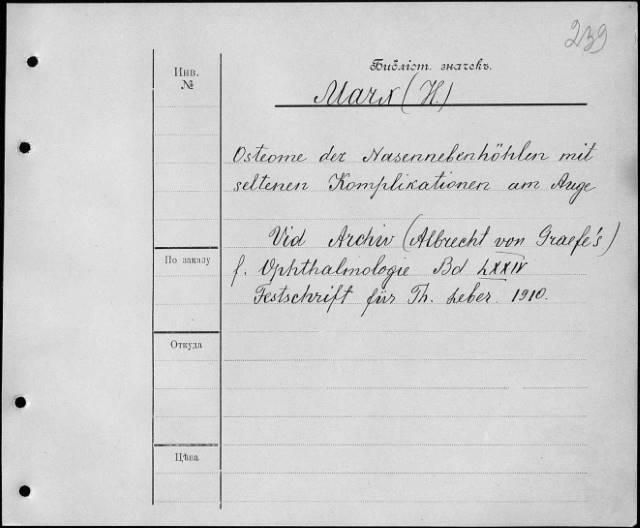 239
Инв.
№
Библіот. значекъ.
Marx (H.)
Osteome der Nasennebenhöhlen mit
seltenen Komplikationen am Auge
Vid Archiv (Albrecht von Graefe's)
f. Ophthalmologie Bd LXXIV
Festschrift für Th. Leber. 1910.
По заказу
Откуда
Цѣна